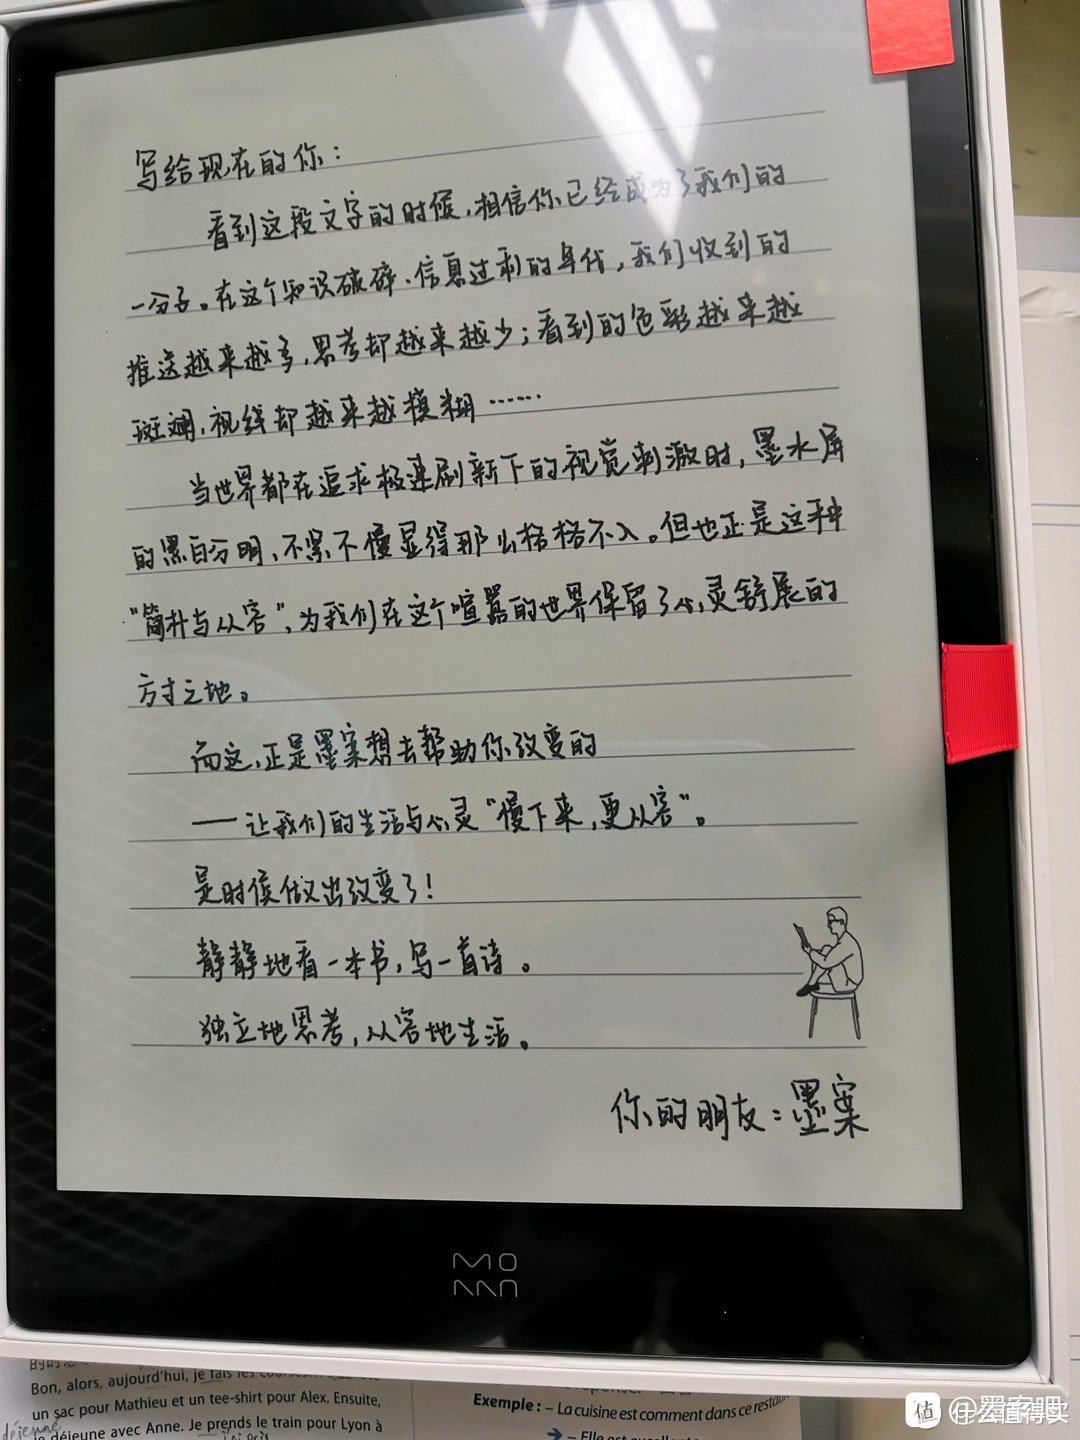 写给现在的你：
看到这段文字的时候，相信你已经成为了我们的
一分子。在这个知识破碎、信息过剩的年代，我们收到的
推送越来越多，思考却越来越少；看到的色彩越来越
斑斓，视线却越来越模糊……
当世界都在追求极速刷新下的视觉刺激时，墨水屏
的黑白分明，不紧不慢显得那么格格不入。但也正是这种
“简朴与从容”，为我们在这个喧嚣的世界保留了心灵舒展的
方寸之地。
而这，正是墨案想去帮助你改变的
——让我们的生活与心灵“慢下来，更从容”。
是时候做出改变了！
静静地看一本书，写一首诗。
独立地思考，从容地生活。
你的朋友：墨案
MOAAN
Bon, alors, aujourd'hui, je fais les
un sac pour Mathieu et un tee-shirt pour Alex. Ensuite,
je déjeune avec Anne. Je prends le train pour Lyon à
déjeune
Exemple : – La cuisine est comment dans ce
➜ – Elle est
值 什么值得买
@墨案吧